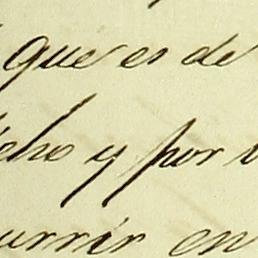 que es de
cho y por
urrir en